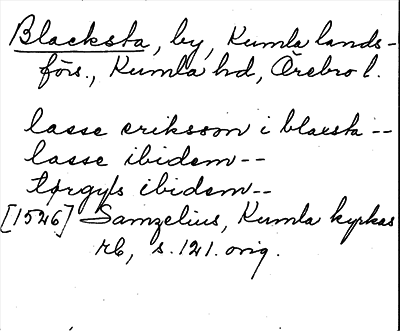 Blacksta, by, Kumla lands-
förs., Kumla hd, Örebro l.
lasse eriksson i blaxsta --
lasse ibidem --
tørgyls ibidem --
[1546] Samzelius, Kumla kyrkas
rb, s. 121. orig.